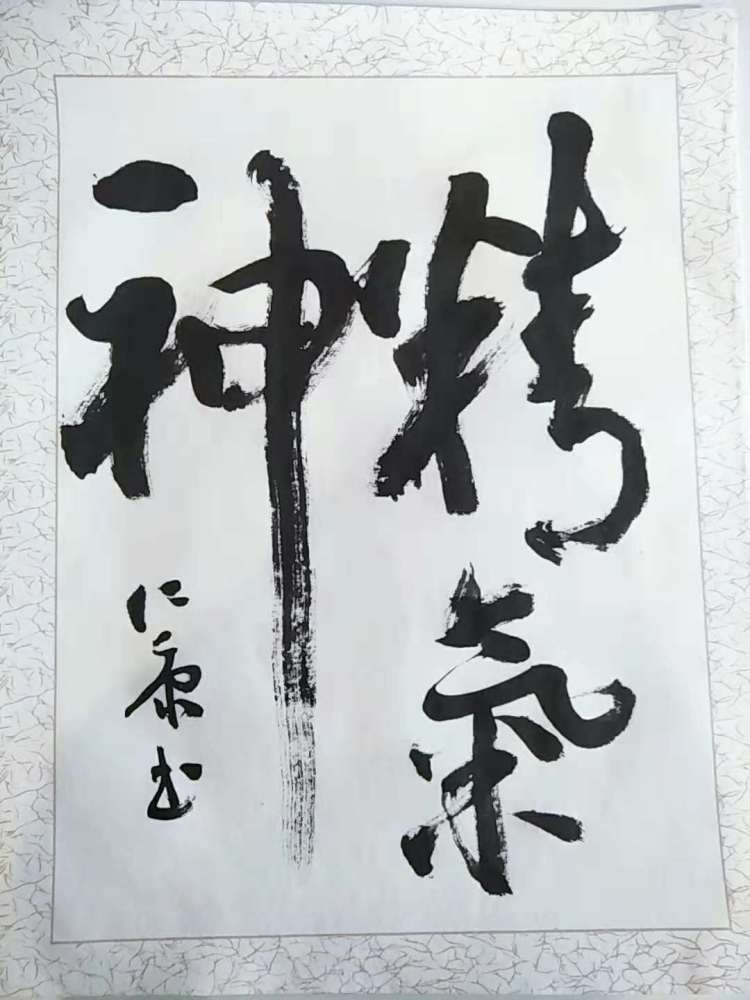 精氣
神
仁康书